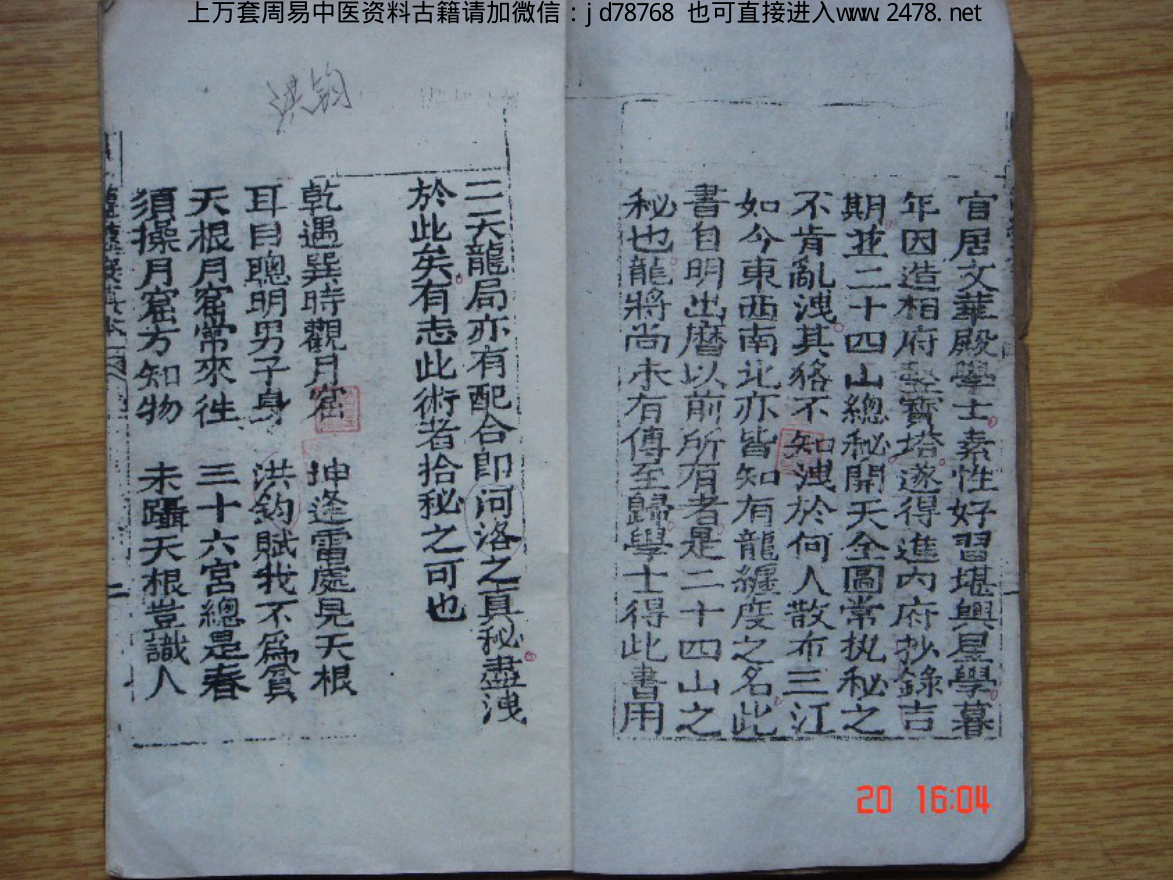 上万套周易中医资料古籍请加微信：jd78768 也可直接进入www.2478.net
官居文華殿學士素性好習堪輿星學暮
年因造相府寶塔遂得進內府抄錄吉
期並二十四山總秘開天全圖常执秘之
不肯亂洩其稿不知洩於何人散布三江
如今東西南北亦皆知有龍纏度之名此
書自明出曆以前所有者是二十四山之
秘也龍將尚未有傳至歸學士得此書用
二天龍局亦有配合即河洛之真秘盡洩
於此矣有志此術者拾秘之可也
乾遇巽時觀月窟 坤逢雷處見天根
耳目聰明男子身 洪鈞賦我不為貧
天根月窟常來往 三十六宮總是春
須探月窟方知物 未躡天根豈識人
洪钧
二
20 16:04